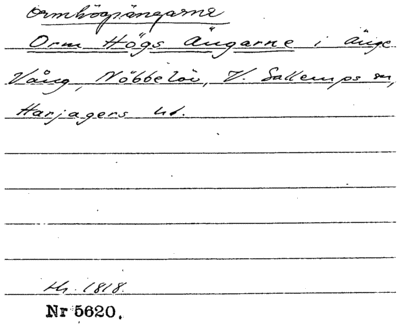 Ormhögsängarne
Orm Högs Ängarne i Änge
Vång, Nöbbelöv, V. Sallerups sn,
Harjagers hd.
Hr. 1818.
Nr 5620.